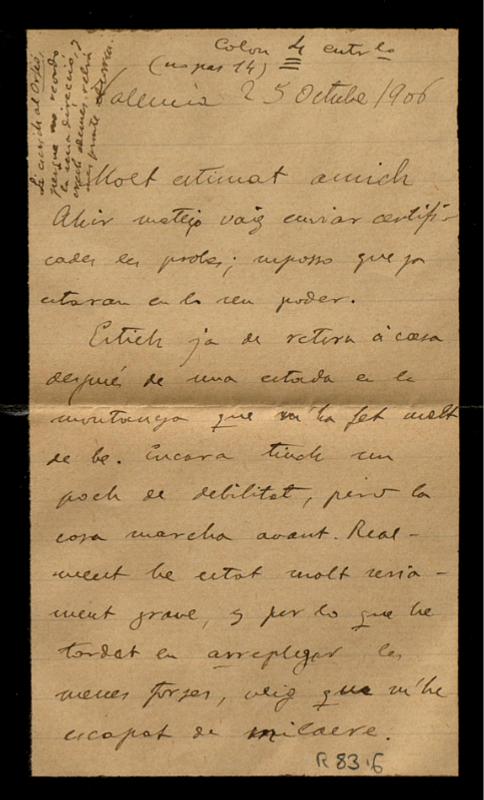 Colon 4 entrlo
(no pas 14)
Valencia 25 Octubre 1906
Li escrich al Orfeó,
perque no recorde
la seua direcció, y
crech demés, rebrá
mes pronte
Molt estimat amich
Ahir mateix vaig enviar certifi-
cades les probes; suposso que ja
estaran en lo seu poder.
Estich ja de retorn á casa
després de una estada en la
montanya que m'ha fet molt
de be. Encara tinch un
poch de debilitat, però la
cosa marcha avant. Real-
ment he estat molt seria-
ment grave, y per lo que he
tardat en arreplegar les
meues forses, veig que m'he
escapat de milacre.
R 83·6